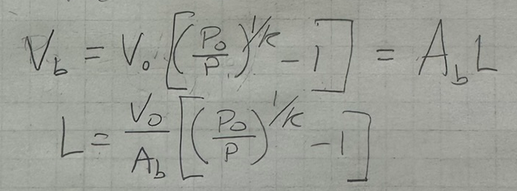 V_b = V_0 [(P_0/P)^{1/k} - 1] = A_b L
L = V_0/A_b [(P_0/P)^{1/k} - 1]